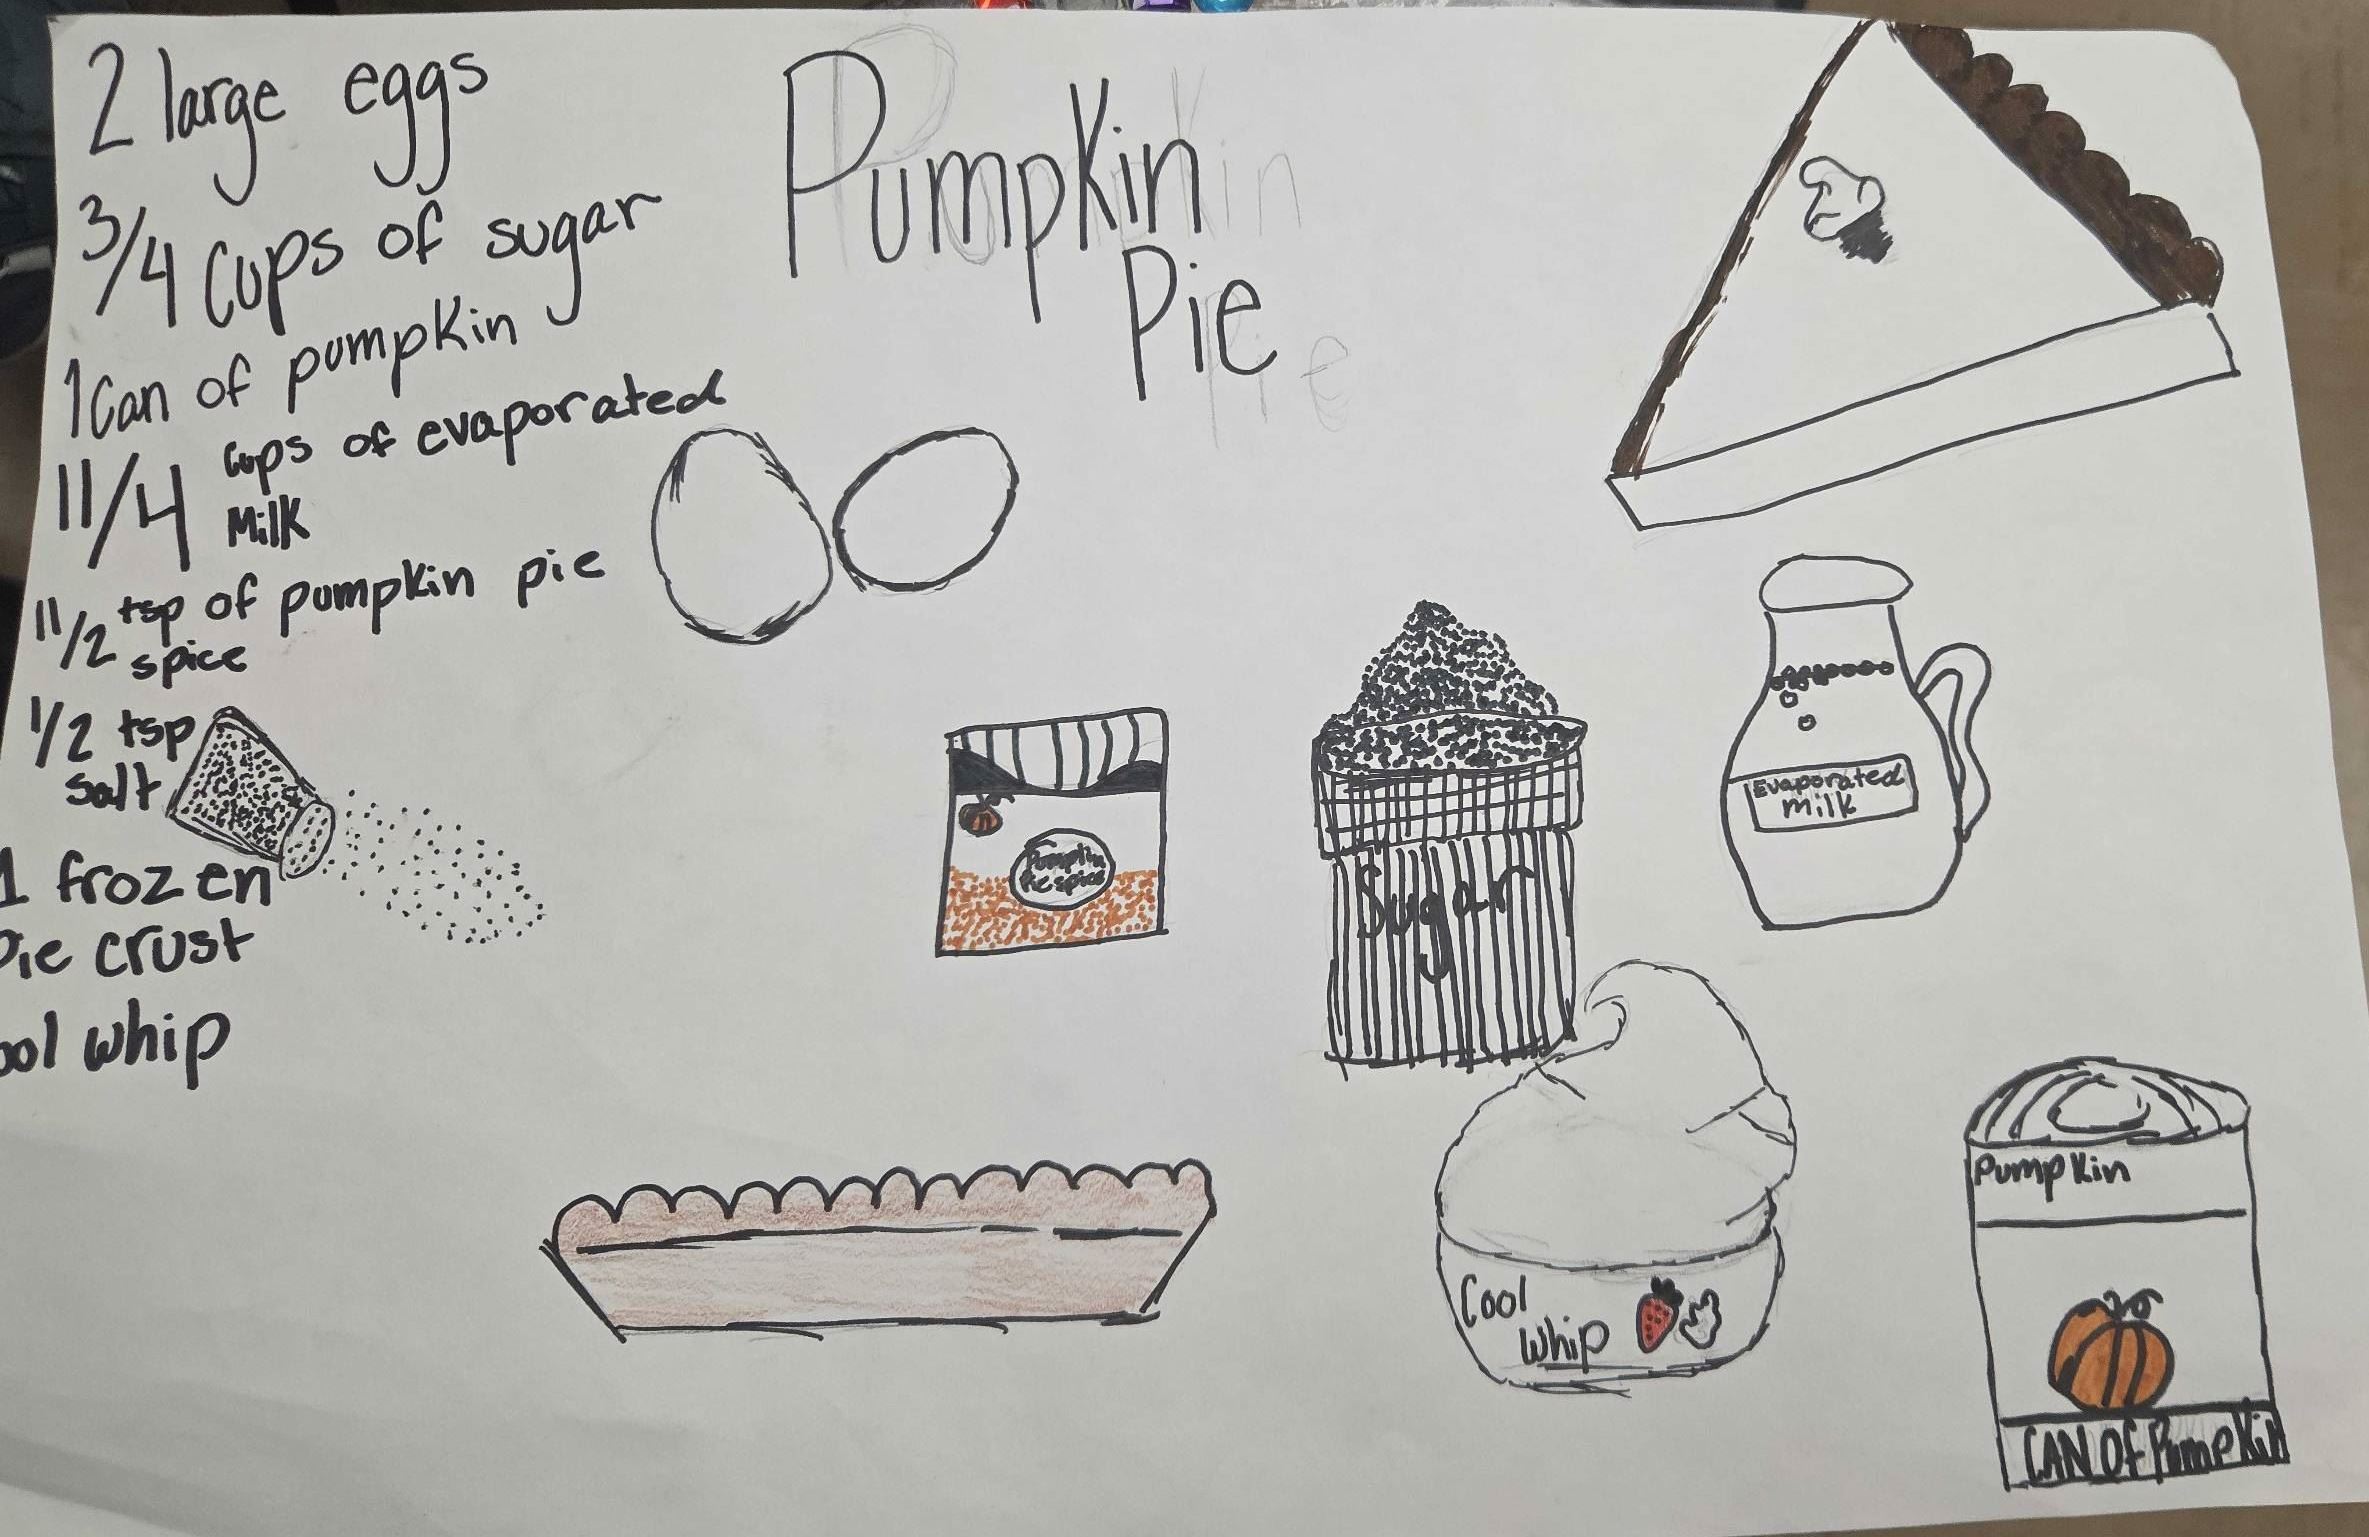 2 large eggs
3/4 cups of sugar
1 can of pumpkin
11/4 cups of evaporated
Milk
11/2 tsp of pumpkin pie
spice
1/2 tsp
salt
1 frozen
Pie crust
ool whip
Pumpkin
Pie
Pumpkin
Pie spice
Sugar
Evaporated
milk
Cool
whip
Pumpkin
CAN Of Pumpkin